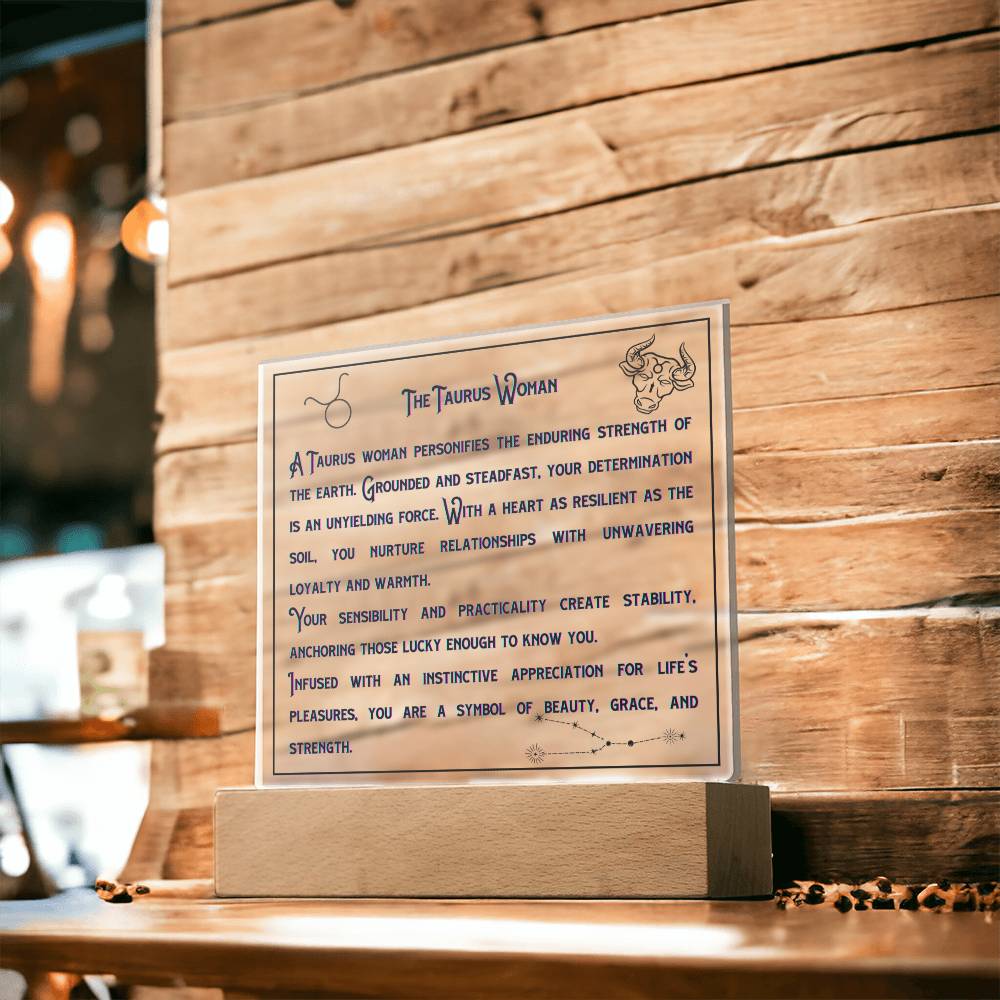 The Taurus Woman
A Taurus woman personifies the enduring strength of
the earth. Grounded and steadfast, your determination
is an unyielding force. With a heart as resilient as the
soil, you nurture relationships with unwavering
loyalty and warmth.
Your sensibility and practicality create stability,
anchoring those lucky enough to know you.
Infused with an instinctive appreciation for life's
pleasures, you are a symbol of beauty, grace, and
strength.